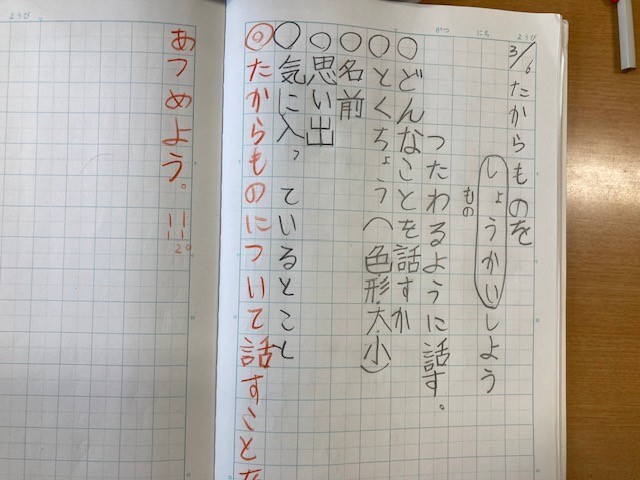 3/6 たからものを
しょうかいしよう
もの
つたわるように話す。
○どんなことを話すか
○とくちょう(色形大小)
○名前
○思い出
○気に入っているとこと
◎たからものについて話すことを
あつめよう。